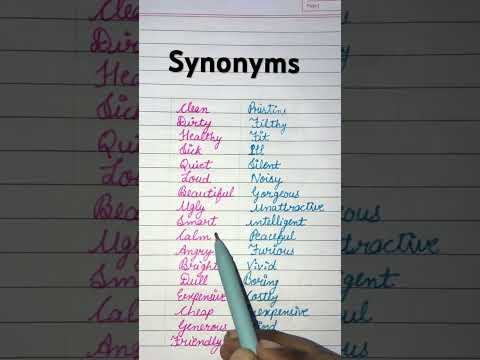 Synonyms
Clean Pristine
Dirty Filthy
Healthy Fit
Sick Ill
Quiet Silent
Loud Noisy
Beautiful Gorgeous
Ugly Unattractive
Smart intelligent
Calm Peaceful
Angry Furious
Bright Vivid
Dull Boring
Expensive Costly
Cheap
Generous
Friendly